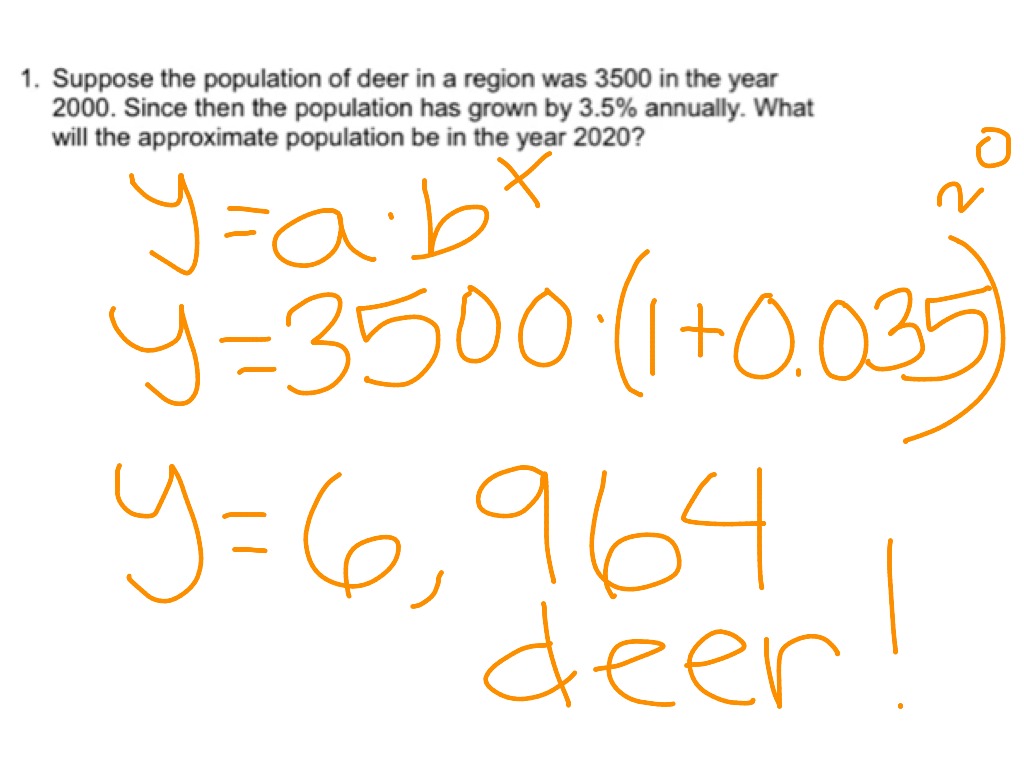 1. Suppose the population of deer in a region was 3500 in the year
2000. Since then the population has grown by 3.5% annually. What
will the approximate population be in the year 2020?
y=a·b^x
y=3500·(1+0.035)^20
y=6,964
deer!